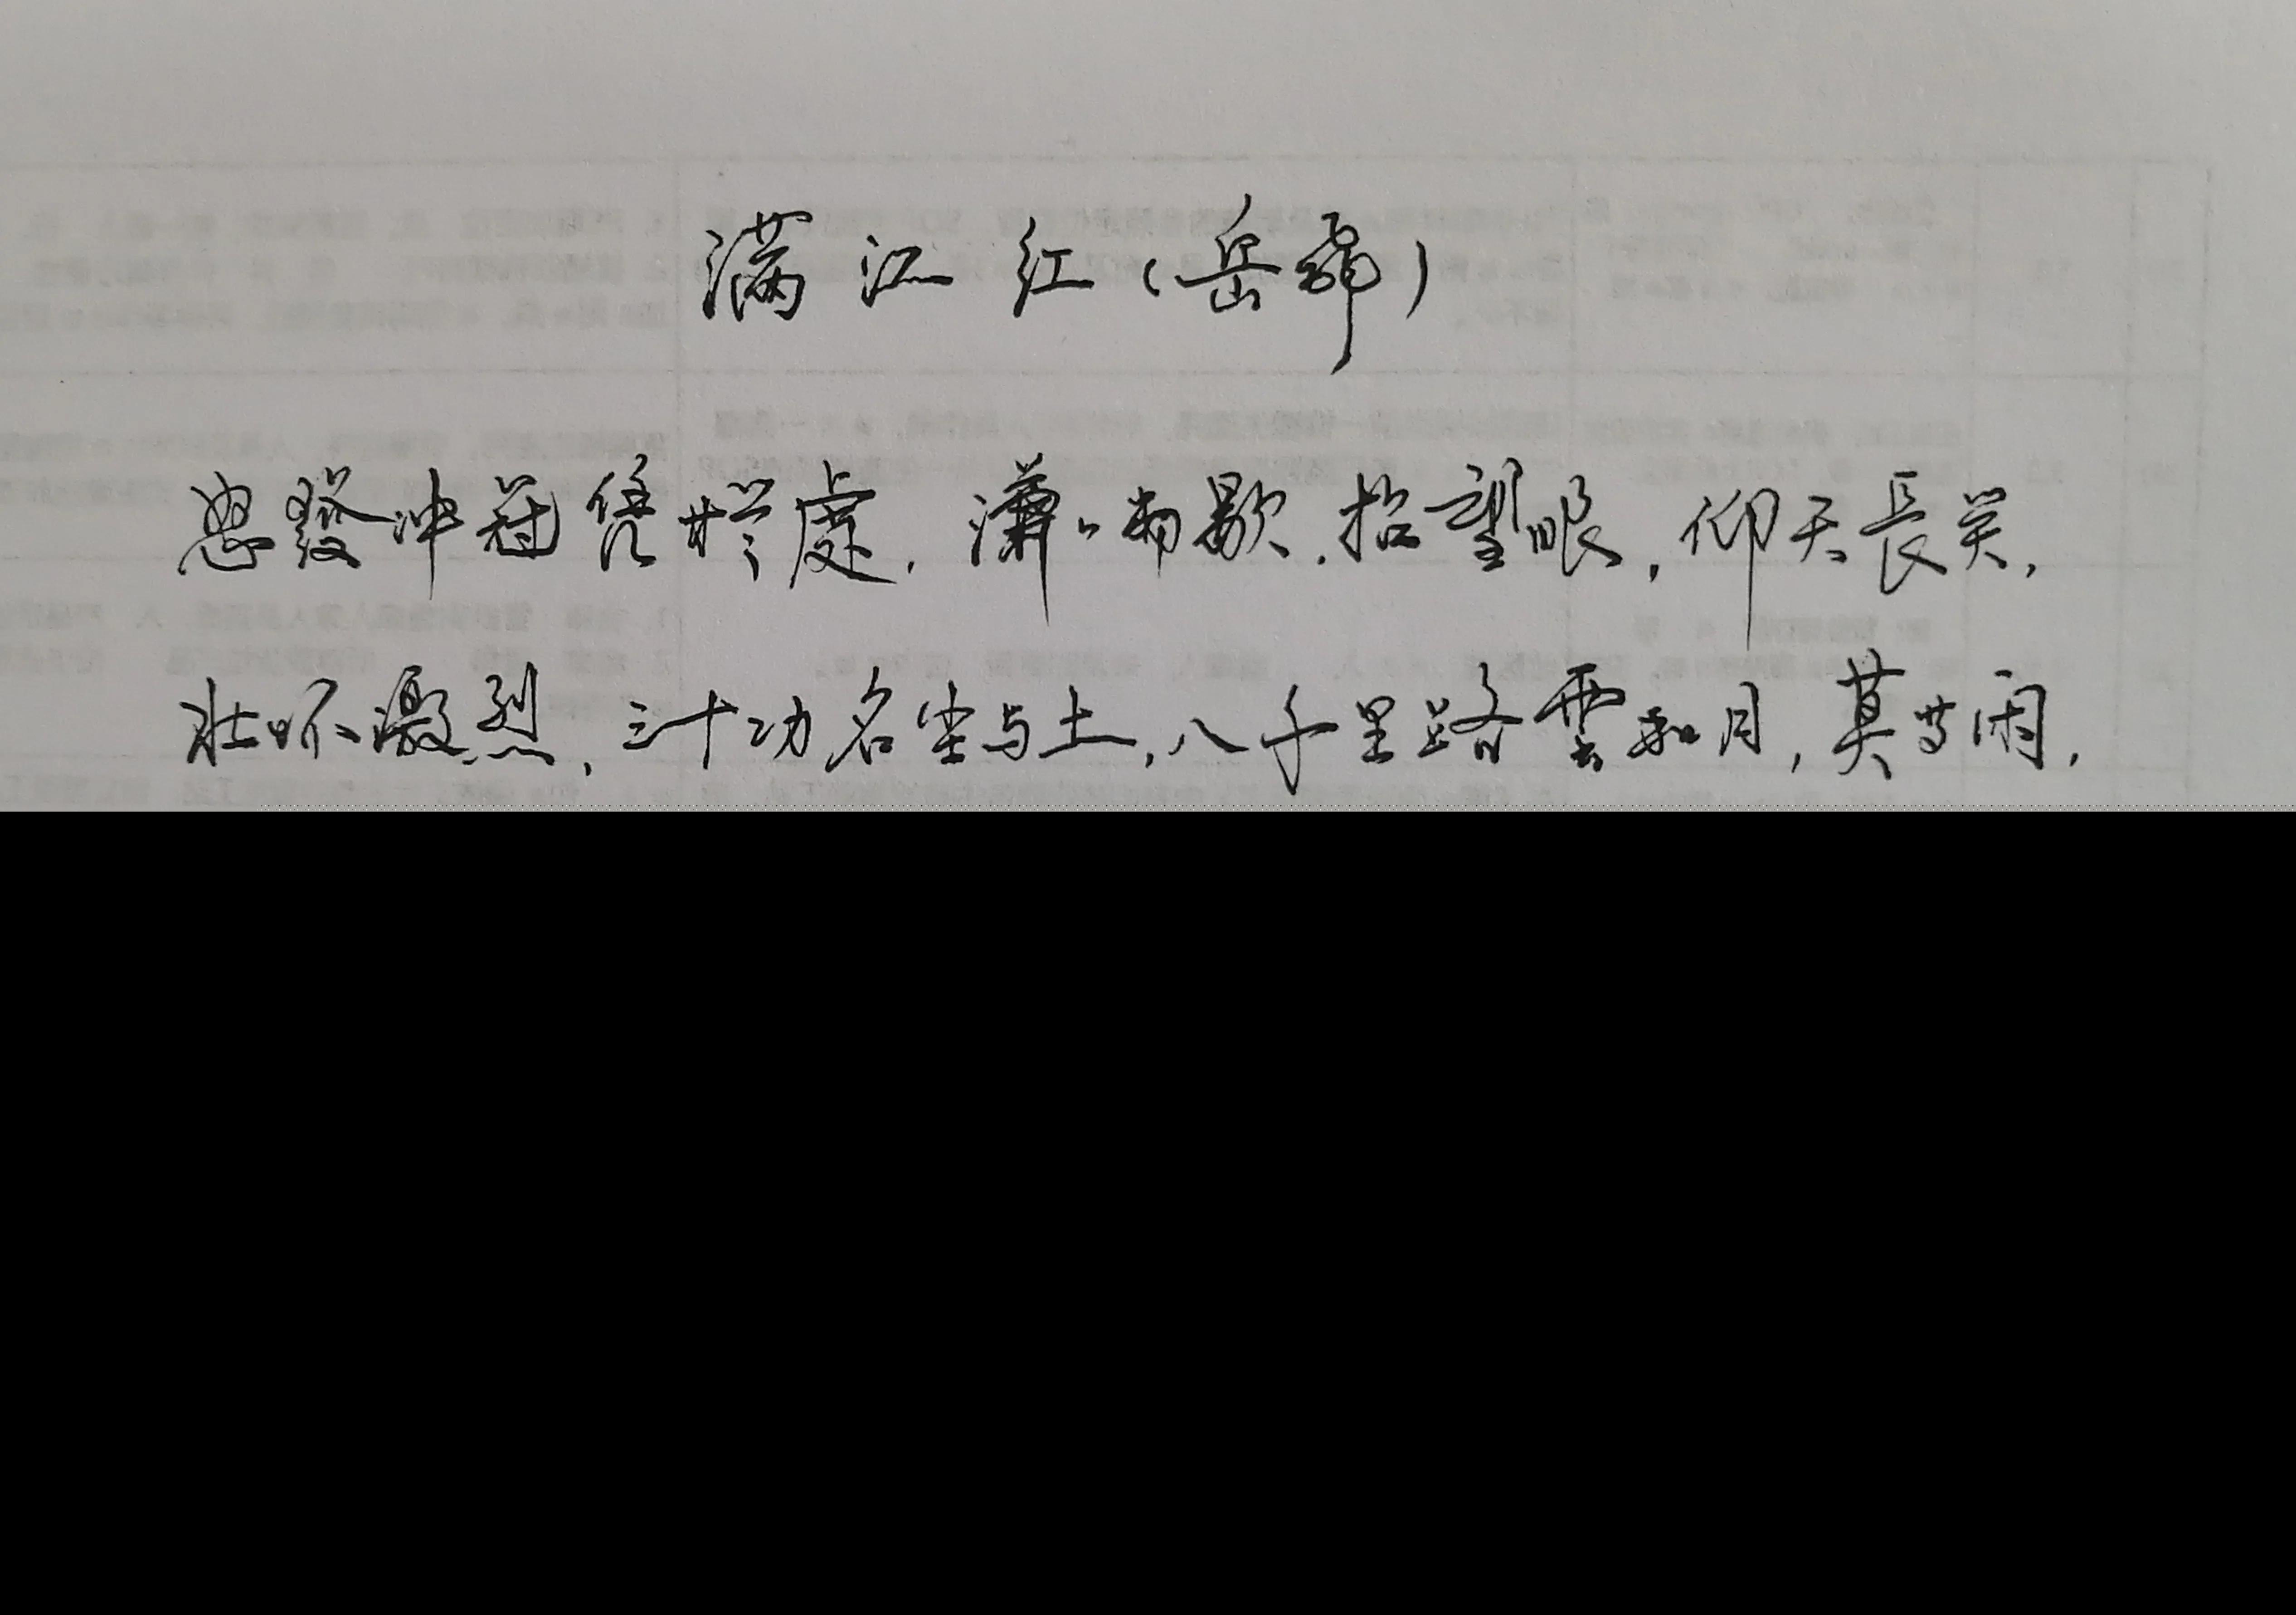 满江红(岳飛)
怒發冲冠凭栏處,潇、雨歇.抬望眼,仰天長笑,
壮怀激烈,三十功名尘与土,八千里路雲和月,莫等闲,